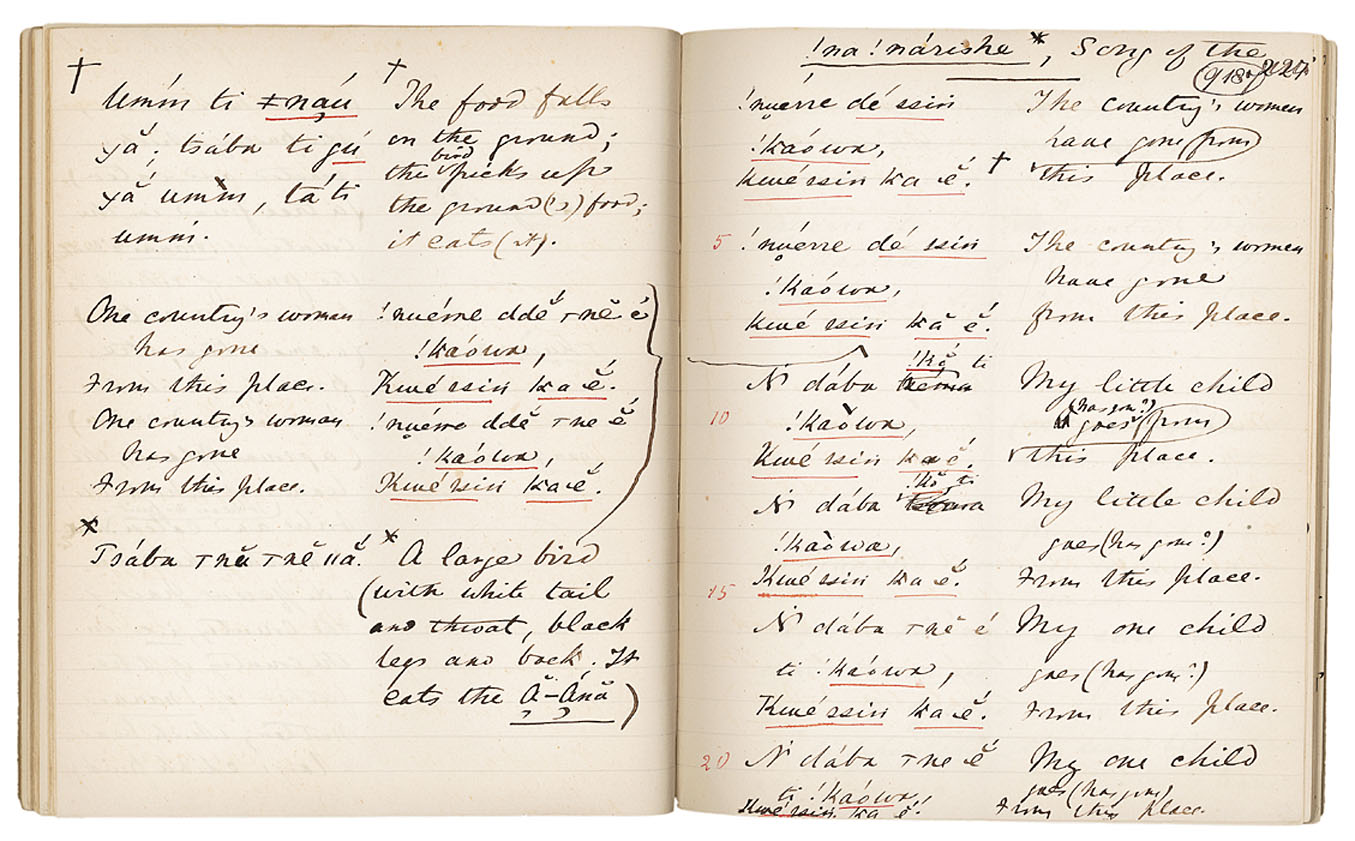 † Umḿ ti ǂnạú † The food falls
yă; tsába ti gú on the ground;
yă umm, tá ti the bird picks up
umḿ. the ground('s) food;
it eats (it).
One country's woman !nu̥érre ddĕ́ ꞇnĕ é
has gone !kaówa,
From this place. Kwé ssin ka ĕ́.
One country's woman !nu̥érre ddĕ́ ꞇne ĕ́
has gone !kaówa,
From this place. Kwé ssin ka ĕ́.
* Tsába ꞇnĕ ꞇnĕ ǁắ. * A large bird
(with white tail
and throat, black
legs and back. It
eats the Ă̦-Á̦nă)
!na!nárishe *, Song of the
918 227
!nuerre dé ssin The country's women
!kaówa, have gone (from)
Kwé ssin ka ĕ́. † this place.
5 !nu̥érre dé ssin The country's women
!kaówa, have gone
Kwé ssin kă ĕ́. from this place.
!kŏ ti
N dába My little child
(has gone?)
10 !kaówa, goes (from)
Kwé ssin ka ĕ́. this place.
!kŏ ti
N dába My little child
!kaówa, goes (has gone?)
15 Kwé ssin ka ĕ́. From this place.
N dába ꞇnĕ é My one child
ti !kaówa, goes (has gone?)
Kwé ssin ka ĕ́. From this place.
20 N dába ꞇne ĕ́ My one child
ti !kaówa, goes (has gone)
Kwé ssin ka ĕ́! From this place.